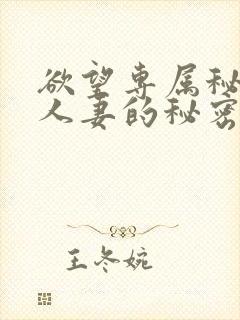 欲望专属秘
人妻的秘密
王冬婉